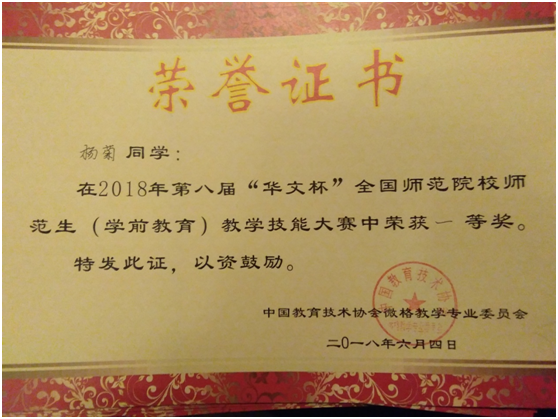 荣誉证书
杨菊同学：
在2018年第八届“华文杯”全国师范院校师
范生（学前教育）教学技能大赛中荣获一等奖。
特发此证，以资鼓励。
中国教育技术协会微格教学专业委员会
二〇一八年六月四日